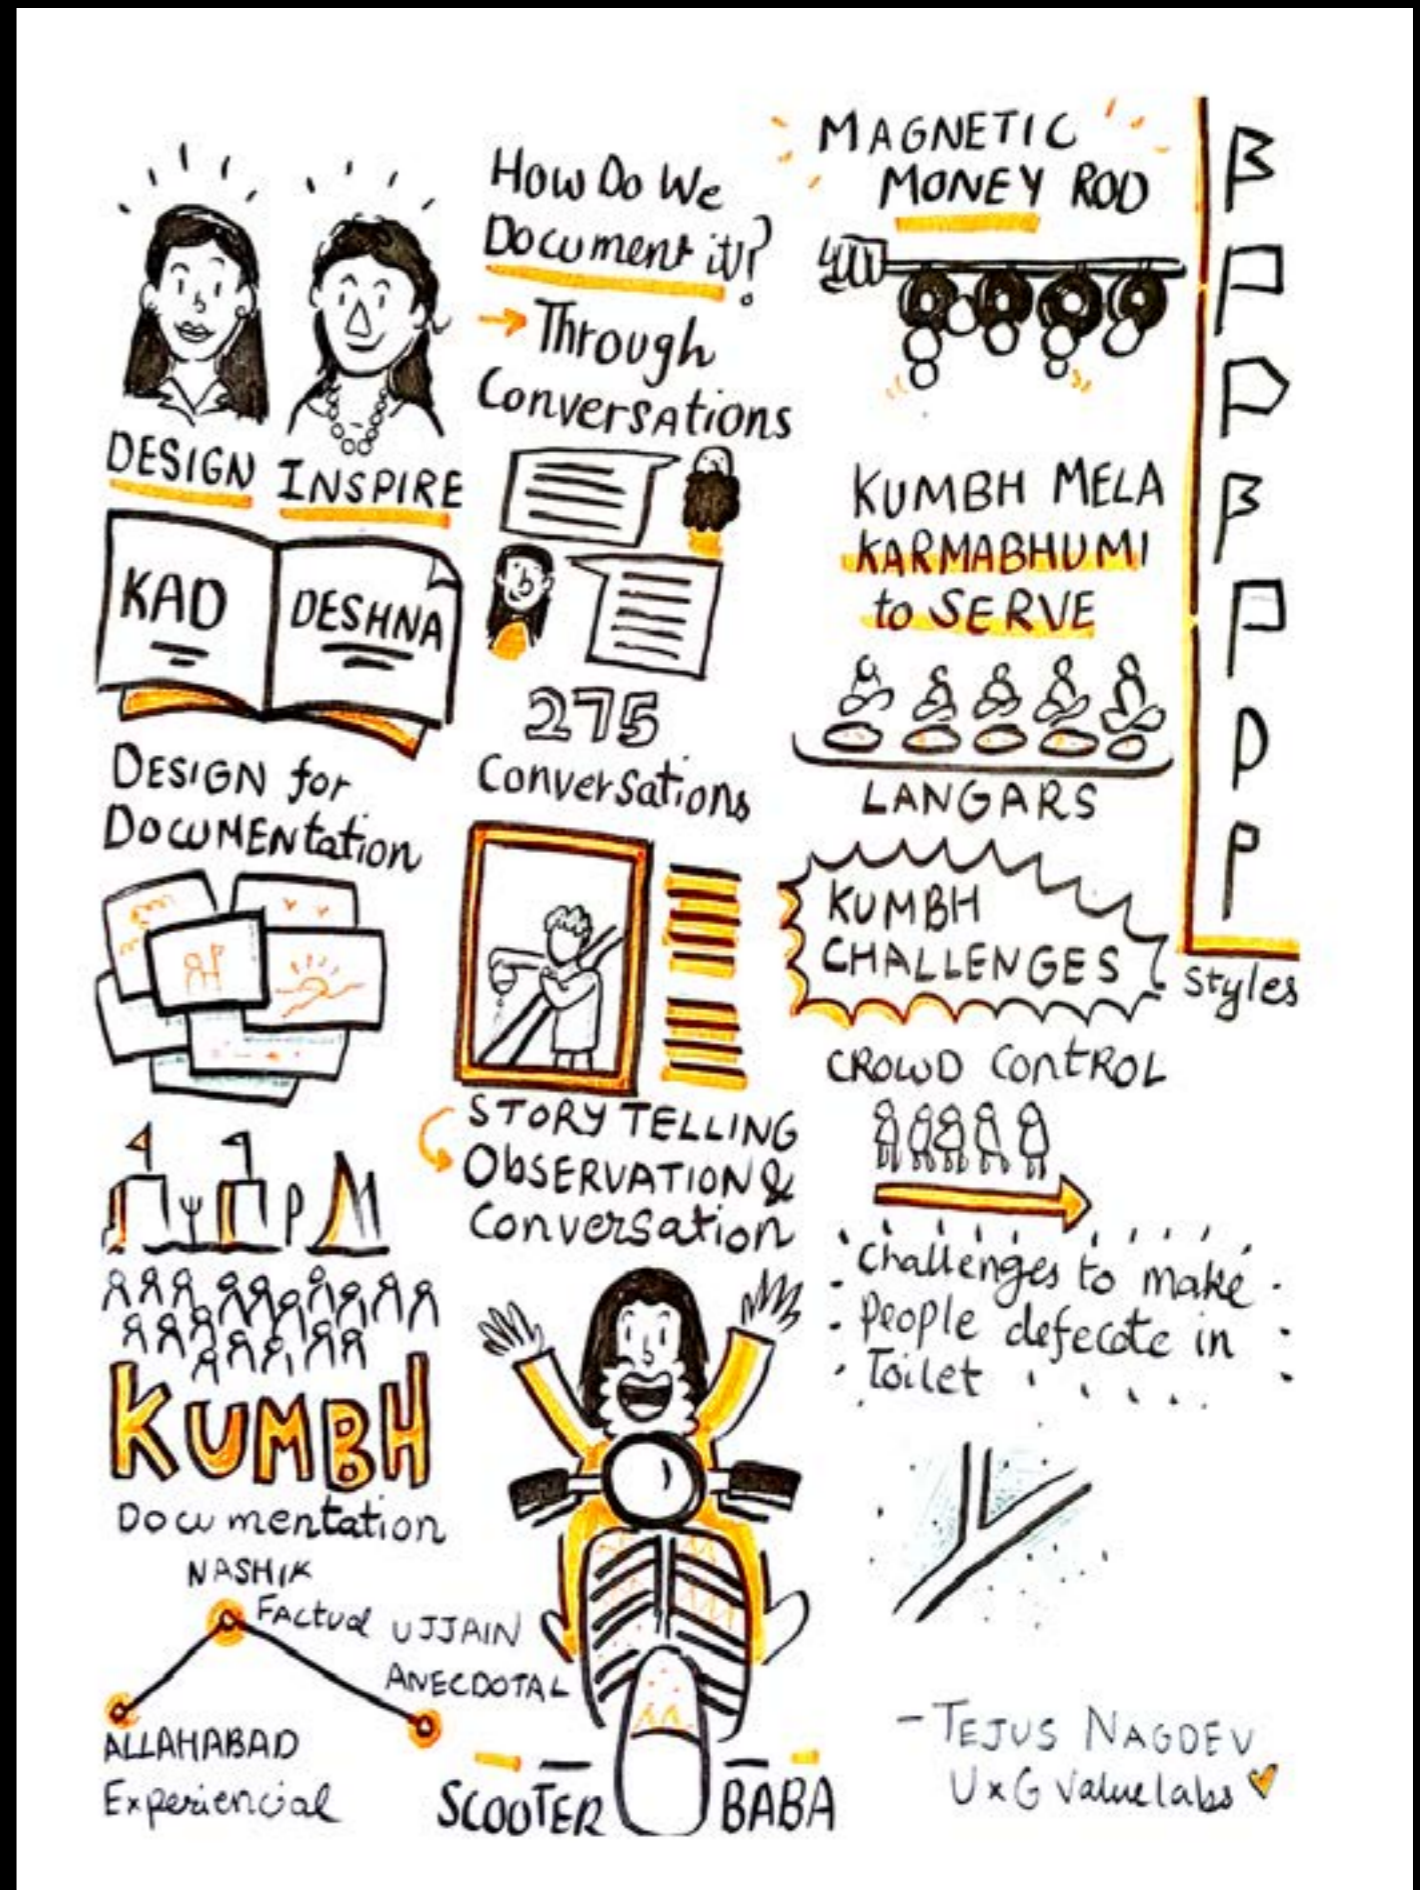 DESIGN INSPIRE
KAD
DESHNA
DESIGN for
DOCUMENtation
KUMBH
Documentation
NASHIK
Factual
UJJAIN
ANECDOTAL
ALLAHABAD
Experiencial
How Do We
Document it?
→ Through
Conversations
275
Conversations
STORY TELLING
ObSERVATION &
Conversation
SCOOTER BABA
MAGNETIC
MONEY ROD
KUMBH MELA
KARMABHUMI
to SERVE
LANGARS
KUMBH
CHALLENGES
CROWD CONtROL
Challenges to make
People defecate in
Toilet
P
P
P
P
P
P
P
Styles
- TEJUS NAGDEV
UxG Valuelabs